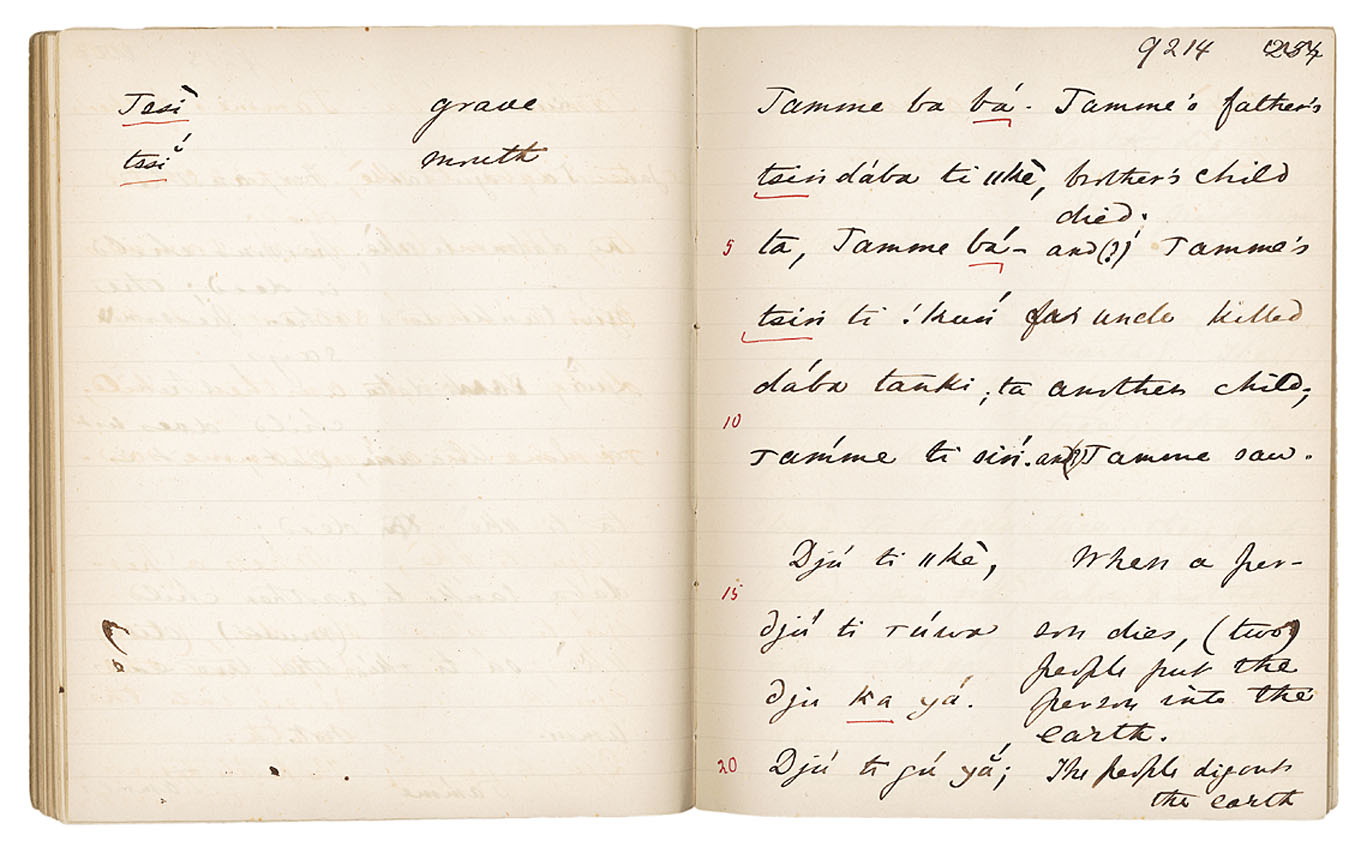 Tssì grave
tssĭ́ mouth
9214 254
Tamme ba bá- Tamme's father's
tsin dába ti ǁkè, brother's child
died.
5 ta, Tamme bá- and(?) Tamme's
tsin ti ǃkuń uncle killed
dába tanki; ta another child;
10
Tamme ti siń. and(?) Tamme saw.
Djú ti ǁkè, When a per-
15
djú ti rúwa son dies, (two)
people put the
dju ka yá. person into the
earth.
20 Djú ti gú yá; The people dig out
the earth